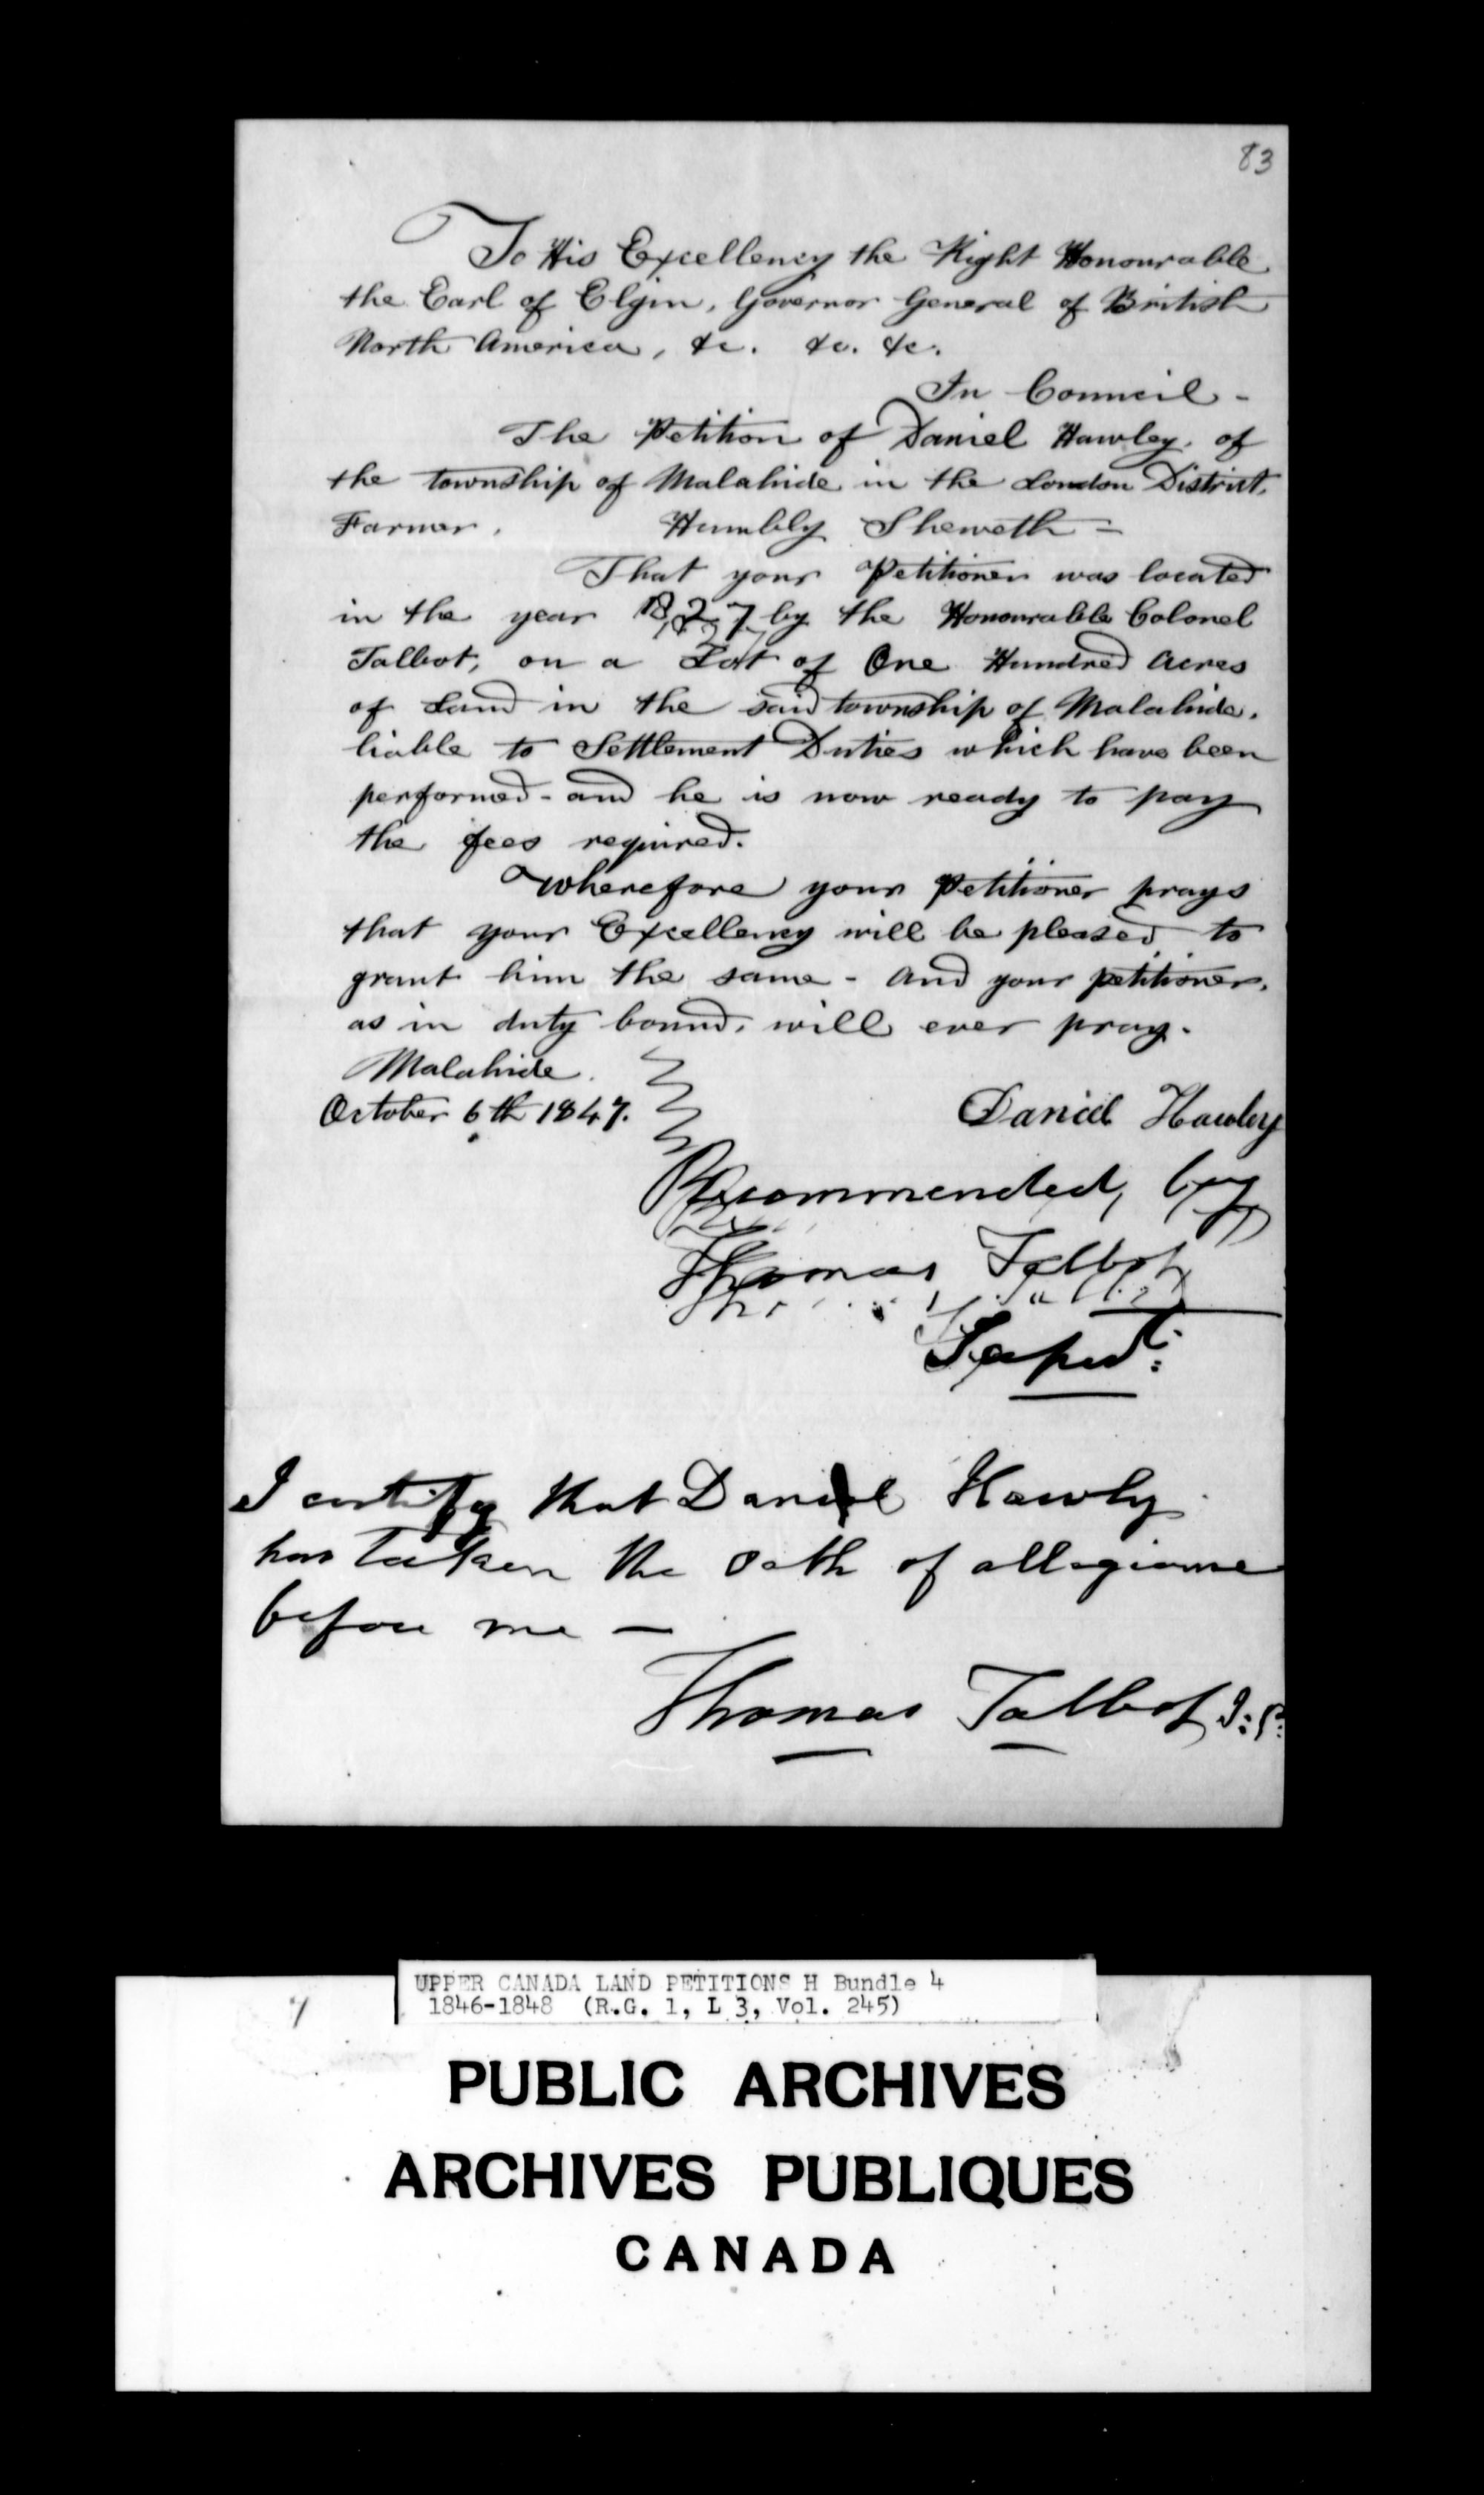 83
To His Excellency the Right Honourable
the Earl of Elgin, Governor General of British
North America, &c. &c. &c.
In Council -
The Petition of Daniel Hawley, of
the township of Malahide in the London District,
Farmer. Humbly Sheweth =
That your Petitioner was located
in the year 1827 by the Honourable Colonel
Talbot, on a Lot of One Hundred Acres
of Land in the said township of Malahide,
liable to Settlement Duties which have been
performed - and he is now ready to pay
the fees required.
Wherefore your Petitioner prays
that your Excellency will be pleased to
grant him the same - And your petitioner,
as in duty bound, will ever pray.
Malahide.
October 6th 1847.
Daniel Hawley
Recommended, by
Thomas Talbot
I certify that Daniel Hawly
has taken the oath of allegiance
before me —
Thomas Talbot J:P:
UPPER CANADA LAND PETITIONS H Bundle 4
1846-1848 (R.G. 1, L 3, Vol. 245)
PUBLIC ARCHIVES
ARCHIVES PUBLIQUES
CANADA